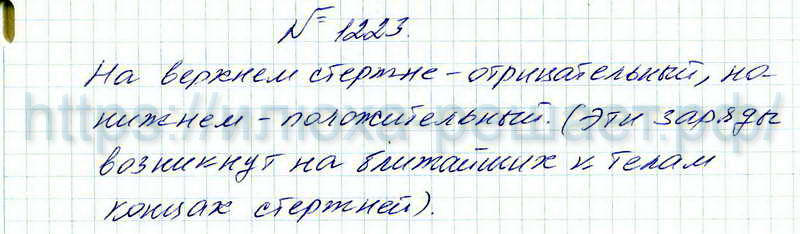 № 1223.
На верхнем стержне - отрицательный, на
нижнем - положительный. (Эти заряды
возникнут на ближайших к телам
концах стержней).